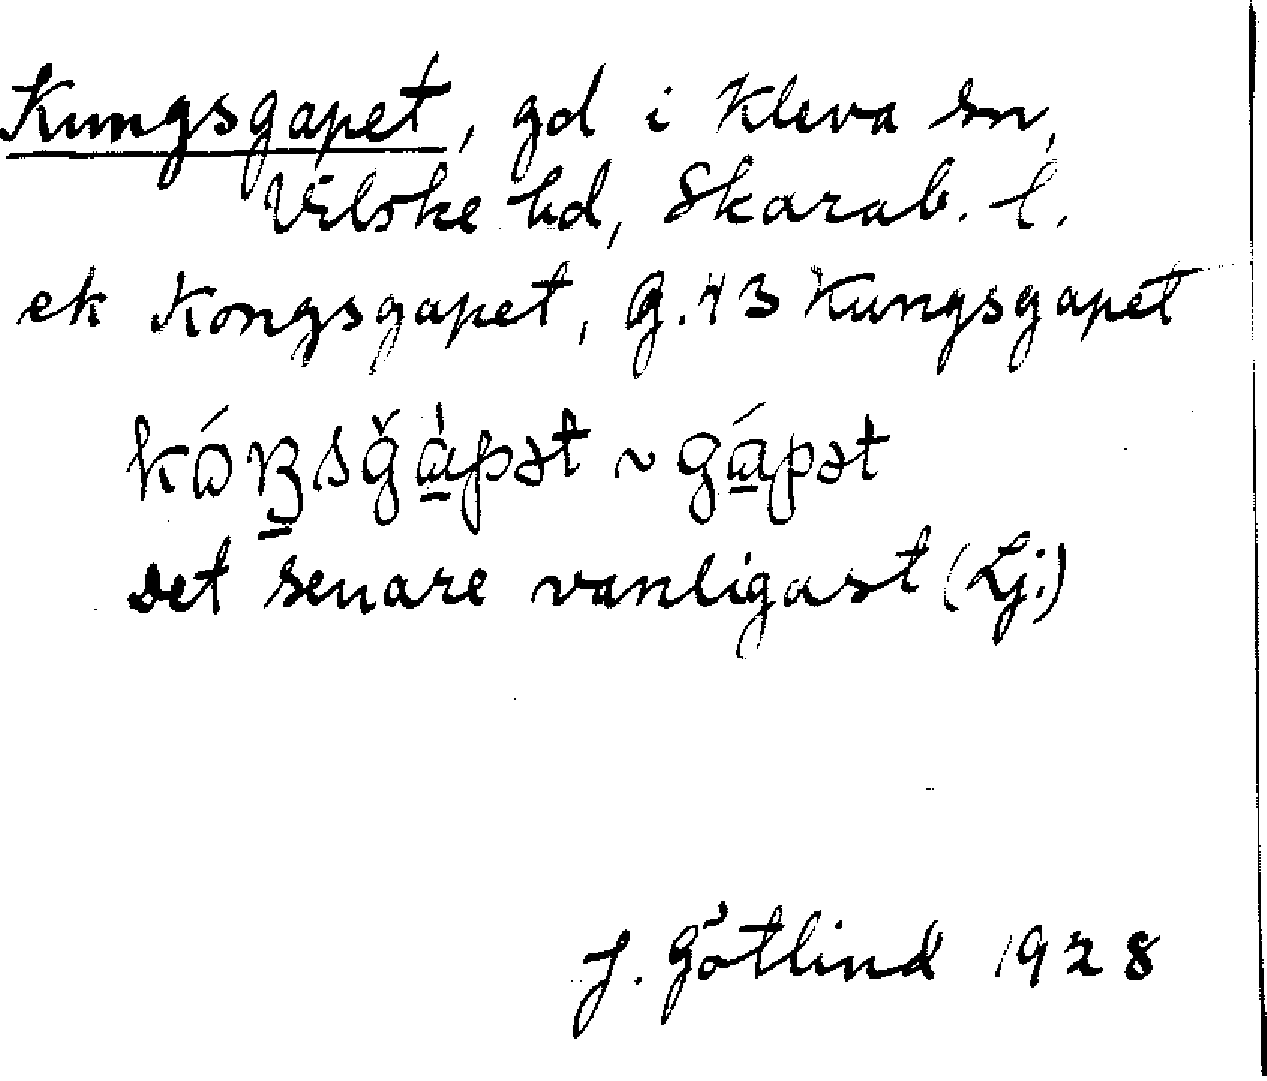 Kungsgapet, gd i Kleva sn,
Vilske hd, Skarab. l.
ek Kongsgapet, G. 43 Kungsgapet
kóŋsğàpət ~ gápət
det senare vanligast (Lj.)
J. Götlind 1928